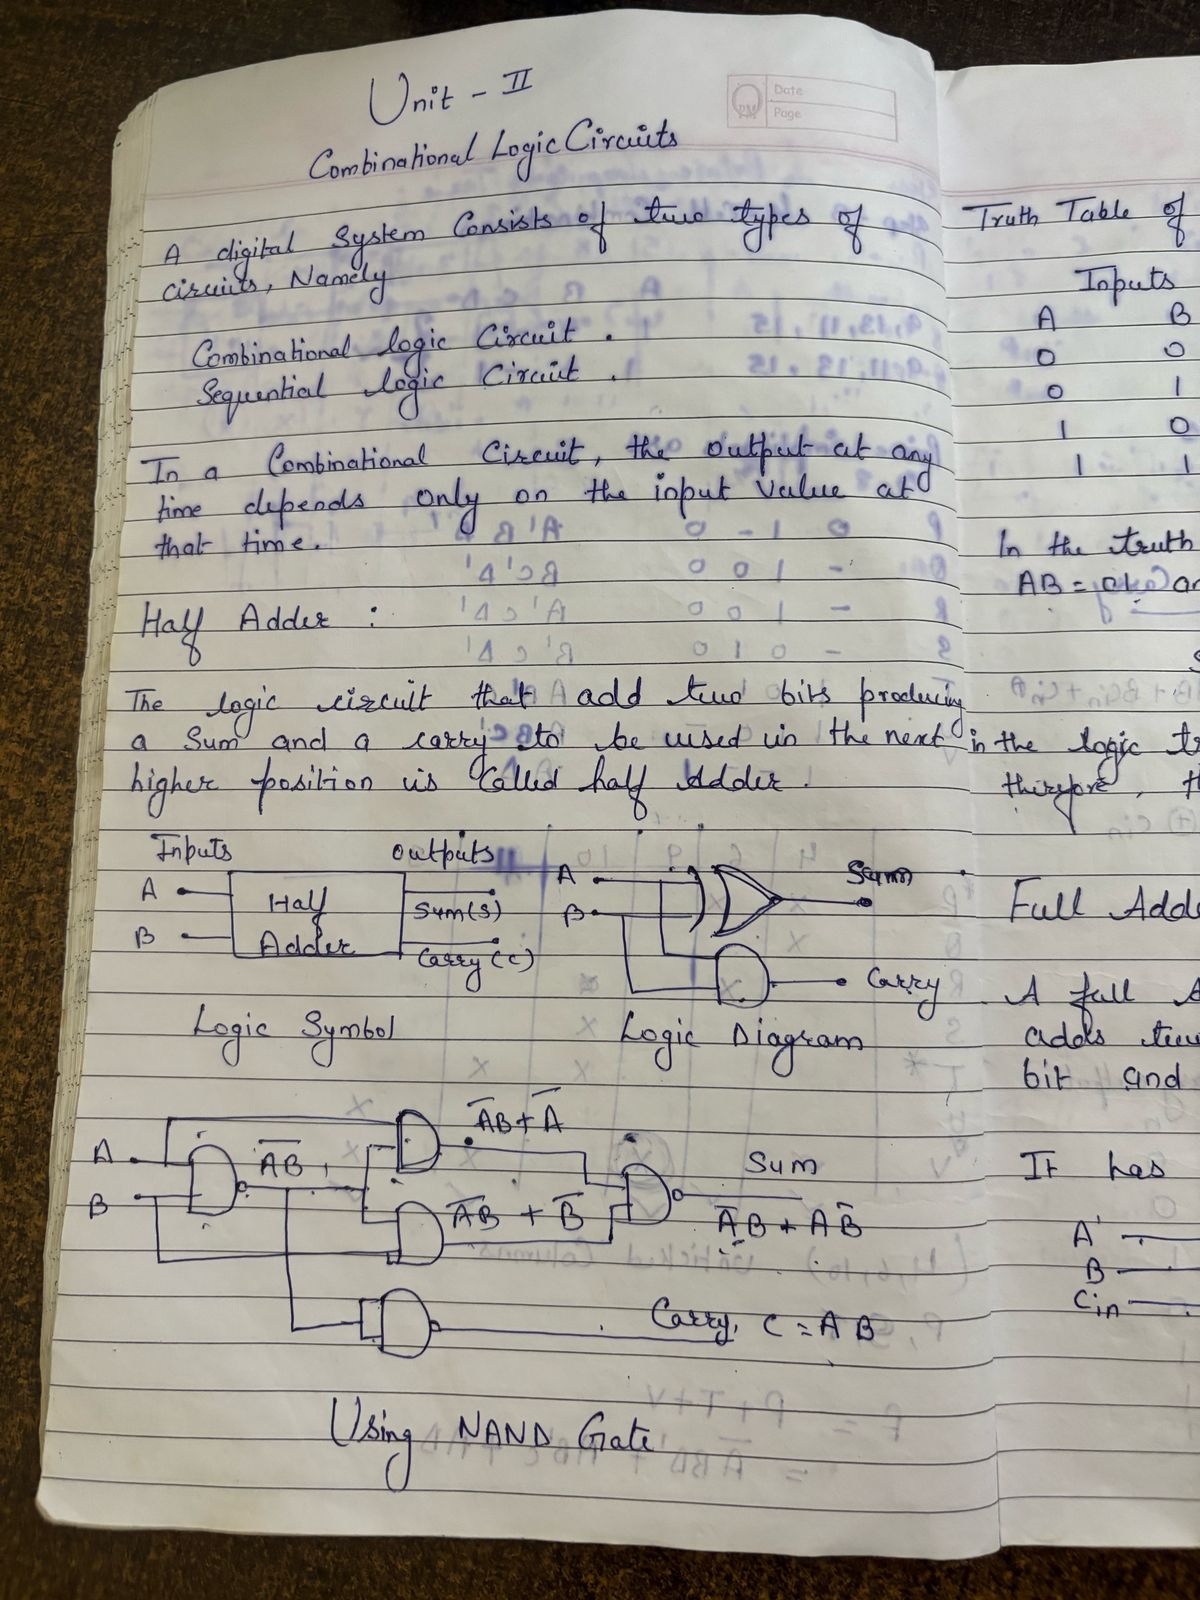 Unit - II
Date
Page
Combinational Logic Circuits
A digital System Consists of two types of
circuits, Namely
Combinational logic Circuit.
Sequential logic Circuit.
In a Combinational Circuit, the output at any
time depends only on the input value at
that time.
Half Adder :
The logic circuit that add two bits producing
a Sum and a carry to be used in the next
higher position is Called half Adder.
Inputs Outputs
A
B
Half
Adder
Sum(S)
Carry (C)
A
B
Sum
Carry
Logic Symbol
Logic Diagram
A
B
A̅B̅
A̅B̅ + A̅
A̅B̅ + B̅
Sum
A̅B + AB̅
Carry, C = AB
Using NAND Gate
Truth Table of
Inputs
A B
0 0
0 1
1 0
1 1
In the truth
AB = 01
in the logic
therefore,
Full
A full
adds
bit and
It has
A
B
Cin